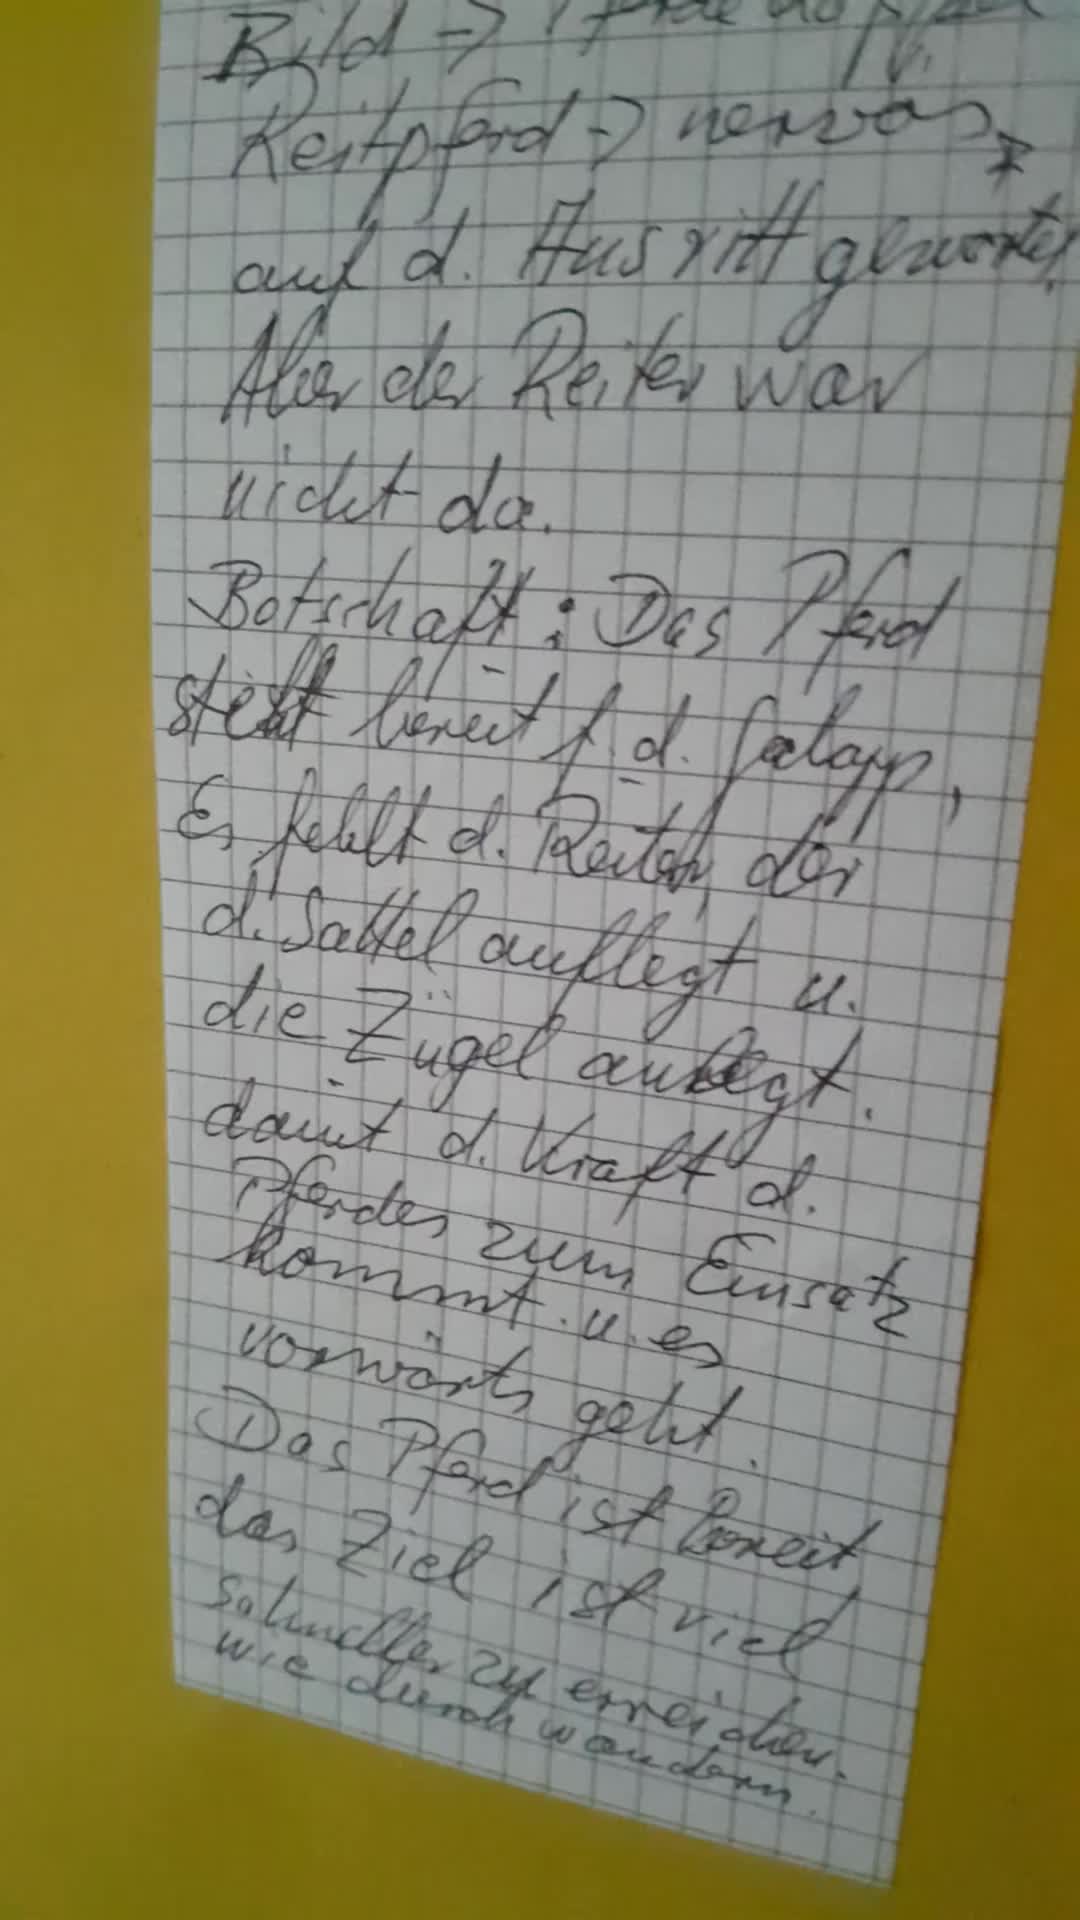 Bild →
Reitpferd → nervös,
auf d. Ausritt gewartet.
Aber der Reiter war
nicht da.
Botschaft: Das Pferd
steht bereit f. d. Galopp,
Es fehlt d. Reiter, der
d. Sattel auflegt u.
die Zügel anlegt.
damit d. Kraft d.
Pferdes zum Einsatz
kommt u. es
vorwärts geht.
Das Pferd ist bereit,
das Ziel ist viel
schneller zu erreichen.
wie durch wandern.